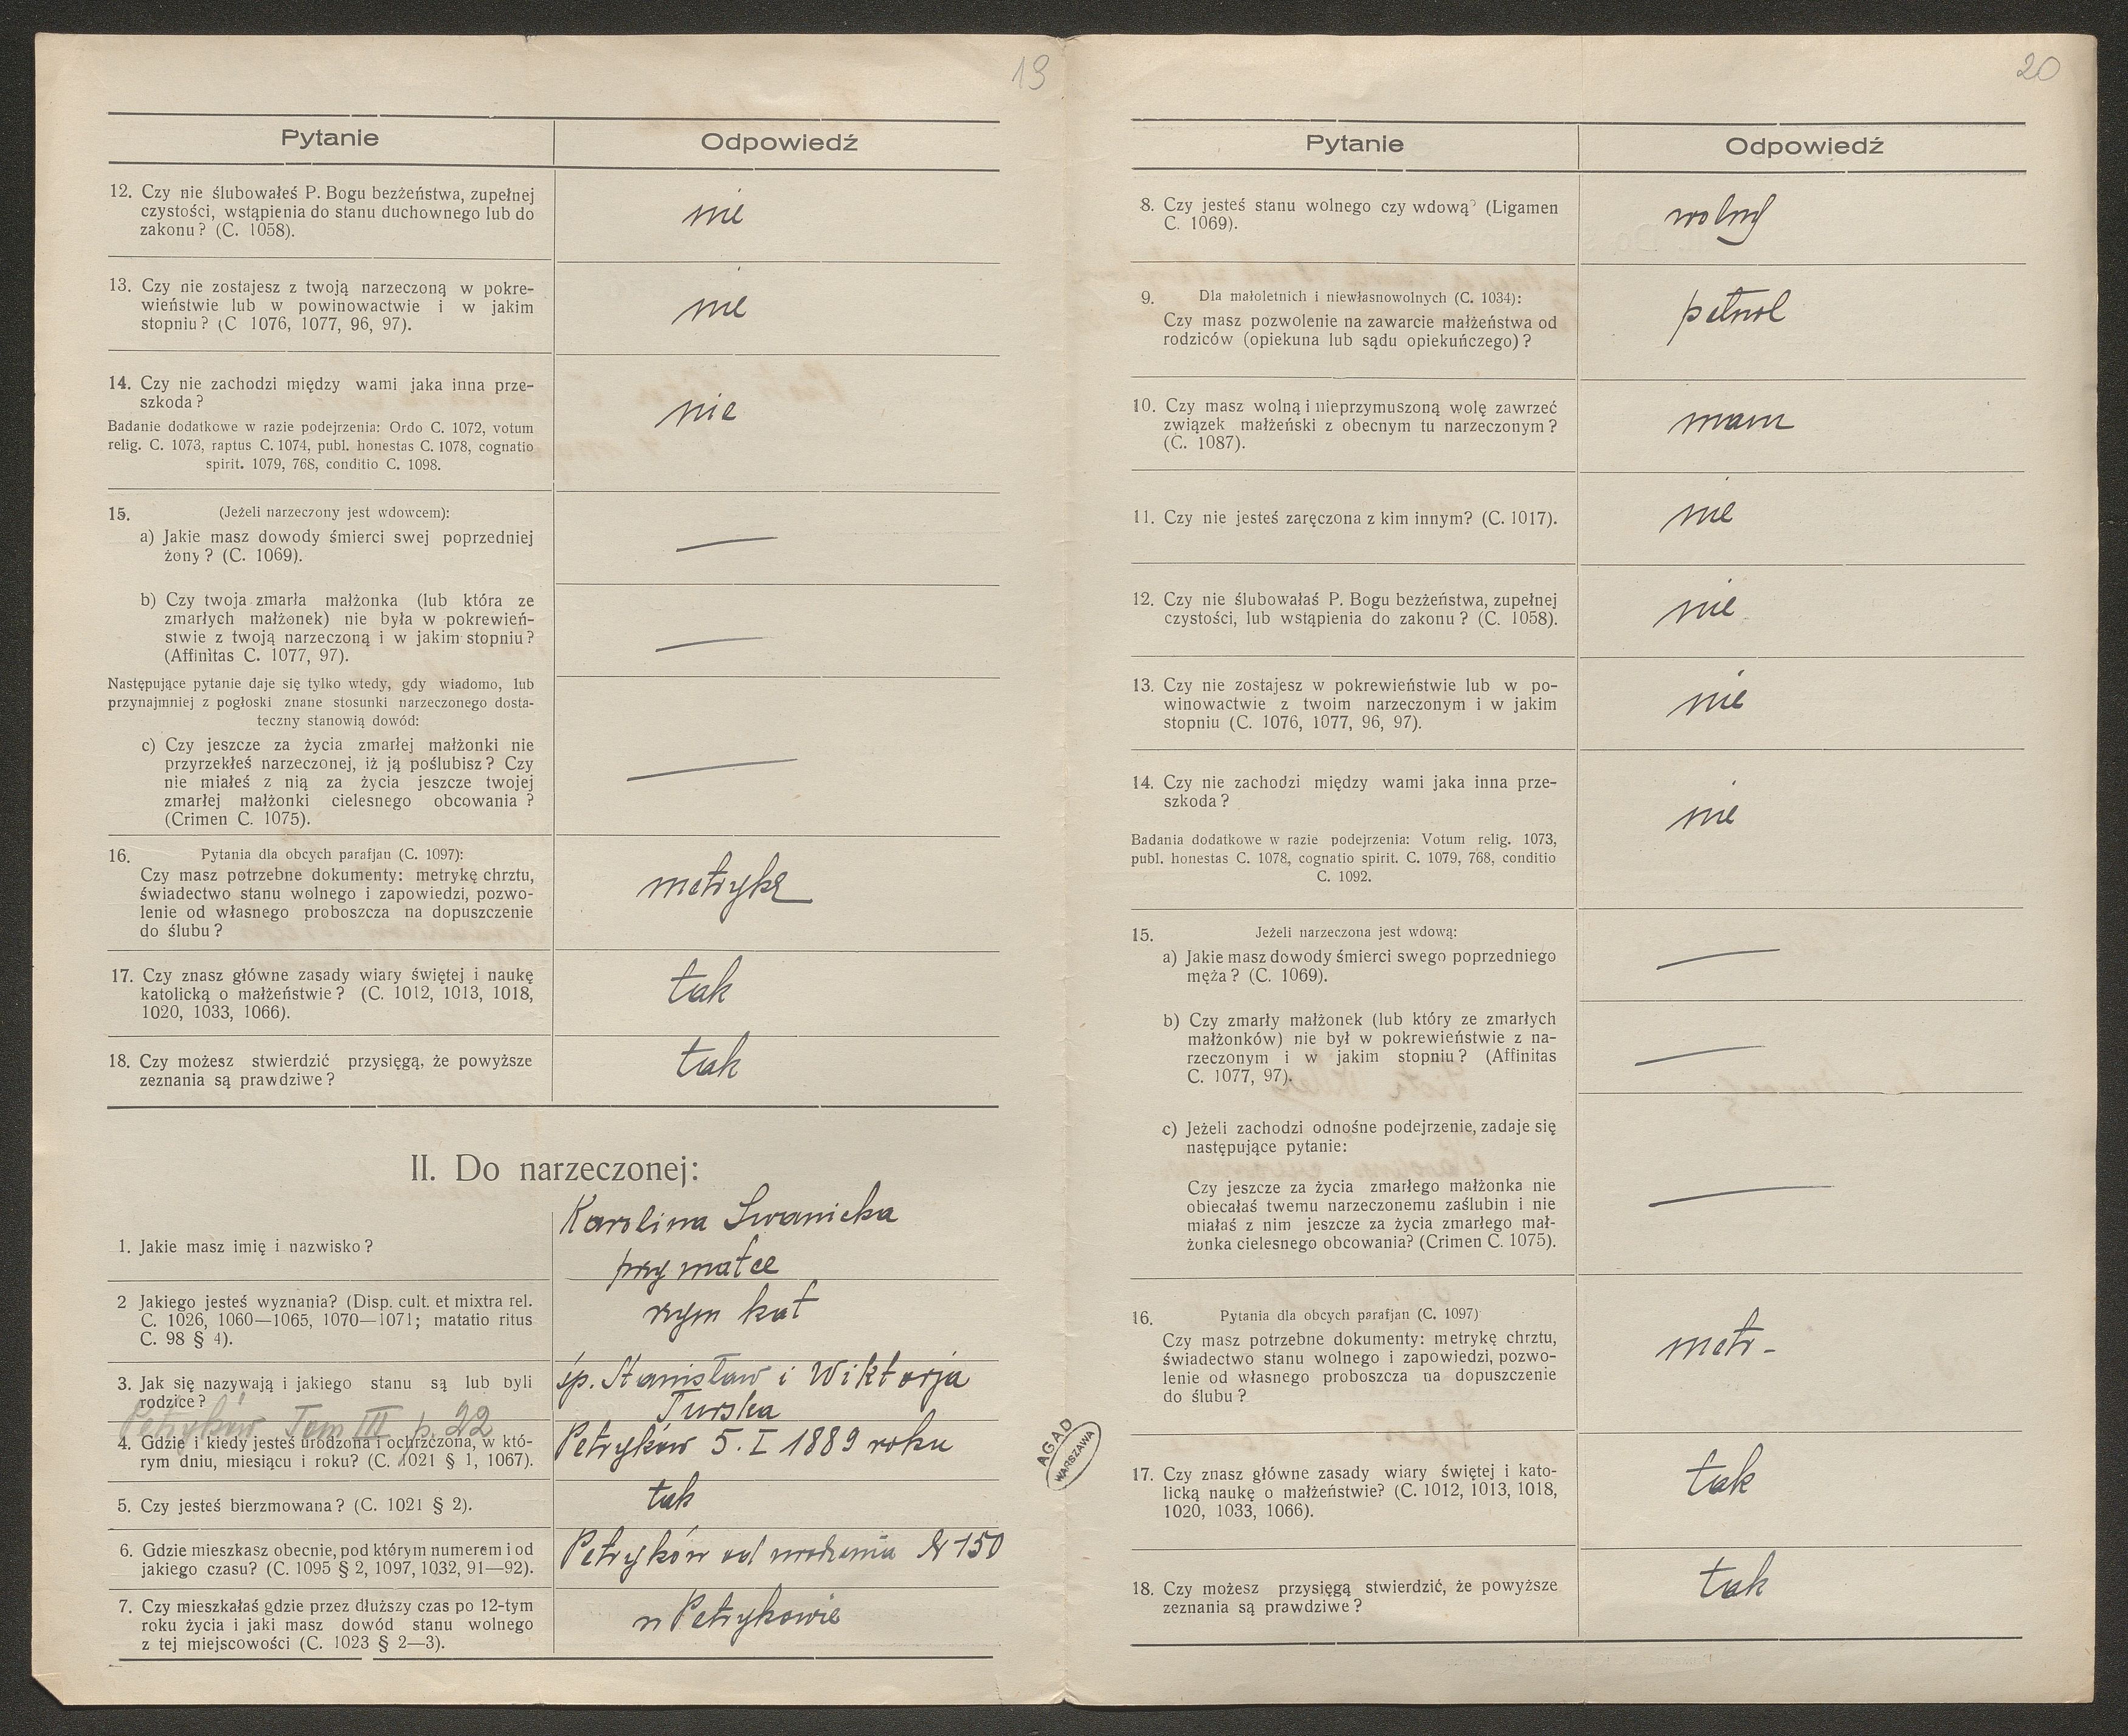 19
Pytanie
Odpowiedź
12. Czy nie ślubowałeś P. Bogu bezżeństwa, zupełnej
czystości, wstąpienia do stanu duchownego lub do
zakonu? (C. 1058).
nie
13. Czy nie zostajesz z twoją narzeczoną w pokre-
wieństwie lub w powinowactwie i w jakim
stopniu? (C 1076, 1077, 96, 97).
nie
14. Czy nie zachodzi między wami jaka inna prze-
szkoda?
Badanie dodatkowe w razie podejrzenia: Ordo C. 1072, votum
relig. C. 1073, raptus C. 1074, publ. honestas C. 1078, cognatio
spirit. 1079, 768, conditio C. 1098.
nie
15. (Jeżeli narzeczony jest wdowcem):
a) Jakie masz dowody śmierci swej poprzedniej
żony? (C. 1069).
—
b) Czy twoja zmarła małżonka (lub która ze
zmarłych małżonek) nie była w pokrewień-
stwie z twoją narzeczoną i w jakim stopniu?
(Affinitas C. 1077, 97).
—
Następujące pytanie daje się tylko wtedy, gdy wiadomo, lub
przynajmniej z pogłoski znane stosunki narzeczonego dosta-
teczny stanowią dowód:
c) Czy jeszcze za życia zmarłej małżonki nie
przyrzekłeś narzeczonej, iż ją poślubisz? Czy
nie miałeś z nią za życia jeszcze twojej
zmarłej małżonki cielesnego obcowania?
(Crimen C. 1075).
—
16. Pytania dla obcych parafjan (C. 1097):
Czy masz potrzebne dokumenty: metrykę chrztu,
świadectwo stanu wolnego i zapowiedzi, pozwo-
lenie od własnego proboszcza na dopuszczenie
do ślubu?
metrykę
17. Czy znasz główne zasady wiary świętej i naukę
katolicką o małżeństwie? (C. 1012, 1013, 1018,
1020, 1033, 1066).
tak
18. Czy możesz stwierdzić przysięgą, że powyższe
zeznania są prawdziwe?
tak
II. Do narzeczonej:
1. Jakie masz imię i nazwisko?
Karolina Iwanicka
przy matce
2 Jakiego jesteś wyznania? (Disp. cult. et mixtra rel.
C. 1026, 1060—1065, 1070—1071; matatio ritus
C. 98 § 4).
rzym kat
3. Jak się nazywają i jakiego stanu są lub byli
rodzice?
śp. Stanisław i Wiktorja
Turska
Petryków Tom III p. 22
4. Gdzie i kiedy jesteś urodzona i ochrzczona, w któ-
rym dniu, miesiącu i roku? (C. 1021 § 1, 1067).
Petryków 5. I 1889 roku
5. Czy jesteś bierzmowana? (C. 1021 § 2).
tak
6. Gdzie mieszkasz obecnie, pod którym numerem i od
jakiego czasu? (C. 1095 § 2, 1097, 1032, 91—92).
Petryków od urodzenia N 150
7. Czy mieszkałaś gdzie przez dłuższy czas po 12-tym
roku życia i jaki masz dowód stanu wolnego
z tej miejscowości (C. 1023 § 2—3).
w Petrykowie
AGAD
WARSZAWA
20
Pytanie
Odpowiedź
8. Czy jesteś stanu wolnego czy wdową? (Ligamen
C. 1069).
wolny
9. Dla małoletnich i niewłasnowolnych (C. 1034):
Czy masz pozwolenie na zawarcie małżeństwa od
rodziców (opiekuna lub sądu opiekuńczego)?
pełnol
10. Czy masz wolną i nieprzymuszoną wolę zawrzeć
związek małżeński z obecnym tu narzeczonym?
(C. 1087).
mam
11. Czy nie jesteś zaręczona z kim innym? (C. 1017).
nie
12. Czy nie ślubowałaś P. Bogu bezżeństwa, zupełnej
czystości, lub wstąpienia do zakonu? (C. 1058).
nie
13. Czy nie zostajesz w pokrewieństwie lub w po-
winowactwie z twoim narzeczonym i w jakim
stopniu (C. 1076, 1077, 96, 97).
nie
14. Czy nie zachodzi między wami jaka inna prze-
szkoda?
Badania dodatkowe w razie podejrzenia: Votum relig. 1073,
publ. honestas C. 1078, cognatio spirit. C. 1079, 768, conditio
C. 1092.
nie
15. Jeżeli narzeczona jest wdową:
a) Jakie masz dowody śmierci swego poprzedniego
męża? (C. 1069).
—
b) Czy zmarły małżonek (lub który ze zmarłych
małżonków) nie był w pokrewieństwie z na-
rzeczonym i w jakim stopniu? (Affinitas
C. 1077, 97).
—
c) Jeżeli zachodzi odnośne podejrzenie, zadaje się
następujące pytanie:
Czy jeszcze za życia zmarłego małżonka nie
obiecałaś twemu narzeczonemu zaślubin i nie
miałaś z nim jeszcze za życia zmarłego mał-
żonka cielesnego obcowania? (Crimen C. 1075).
—
16. Pytania dla obcych parafjan (C. 1097)
Czy masz potrzebne dokumenty: metrykę chrztu,
świadectwo stanu wolnego i zapowiedzi, pozwo-
lenie od własnego proboszcza na dopuszczenie
do ślubu?
metr-
17. Czy znasz główne zasady wiary świętej i kato-
licką naukę o małżeństwie? (C. 1012, 1013, 1018,
1020, 1033, 1066).
tak
18. Czy możesz przysięgą stwierdzić, że powyższe
zeznania są prawdziwe?
tak